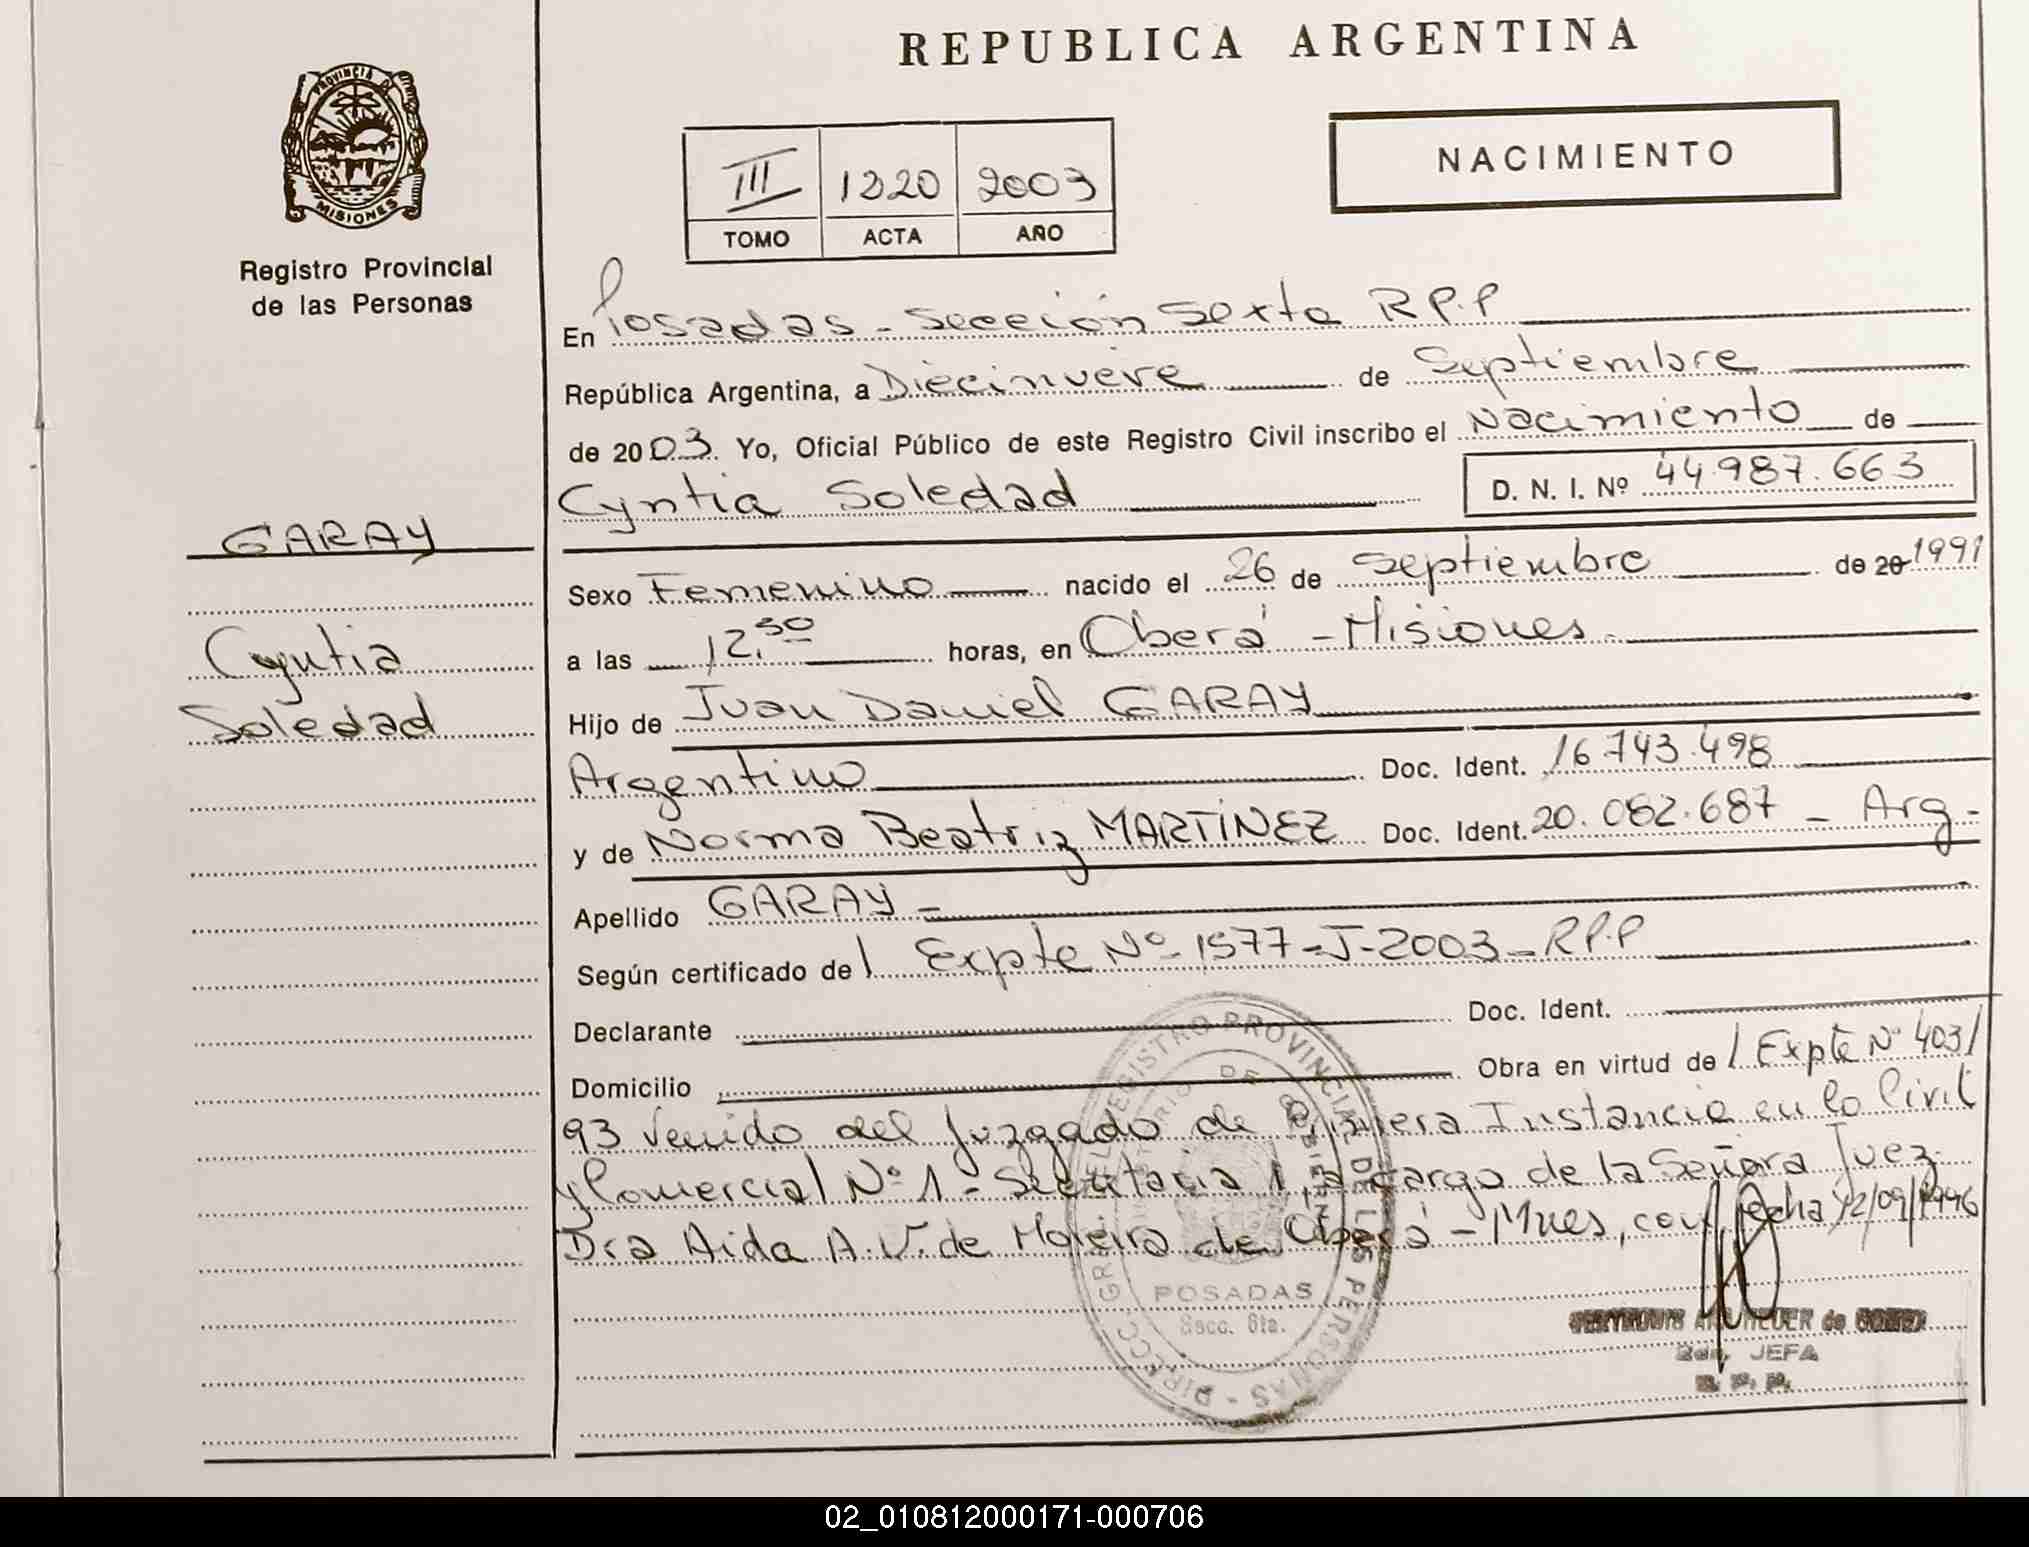 REPUBLICA ARGENTINA
PROVINCIA DE
MISIONES
Registro Provincial
de las Personas
III 1220 2003
TOMO ACTA AÑO
NACIMIENTO
En Posadas - Sección Sexta R.P.P
República Argentina, a Diecinueve de Septiembre
de 2003. Yo, Oficial Público de este Registro Civil inscribo el Nacimiento de
Cyntia Soledad D. N. I. Nº 44.987.663
GARAY
Cyntia
Soledad
Sexo Femenino nacido el 26 de Septiembre de 20 1991
a las 12,30 horas, en Oberá - Misiones.
Hijo de Juan Daniel GARAY
Argentino Doc. Ident. 16.743.498
y de Norma Beatriz MARTÍNEZ Doc. Ident. 20.082.687 - Arg -
Apellido GARAY -
Según certificado de / Expte Nº 1577-J-2003 - R.P.P
Declarante Doc. Ident.
Domicilio Obra en virtud de / Expte Nº 403/
93 venido del Juzgado de Primera Instancia en lo Civil
y Comercial Nº 1 - Secretaria 1, a cargo de la Señora Juez
Dra Aida A. V. de Moreira de Oberá - Mnes, con fecha 12/09/1996
REGISTRO PROVINCIAL DE LAS PERSONAS
POSADAS
Secc. 6ta.
de GOMEZ
JEFA
R. P. P.
02_010812000171-000706